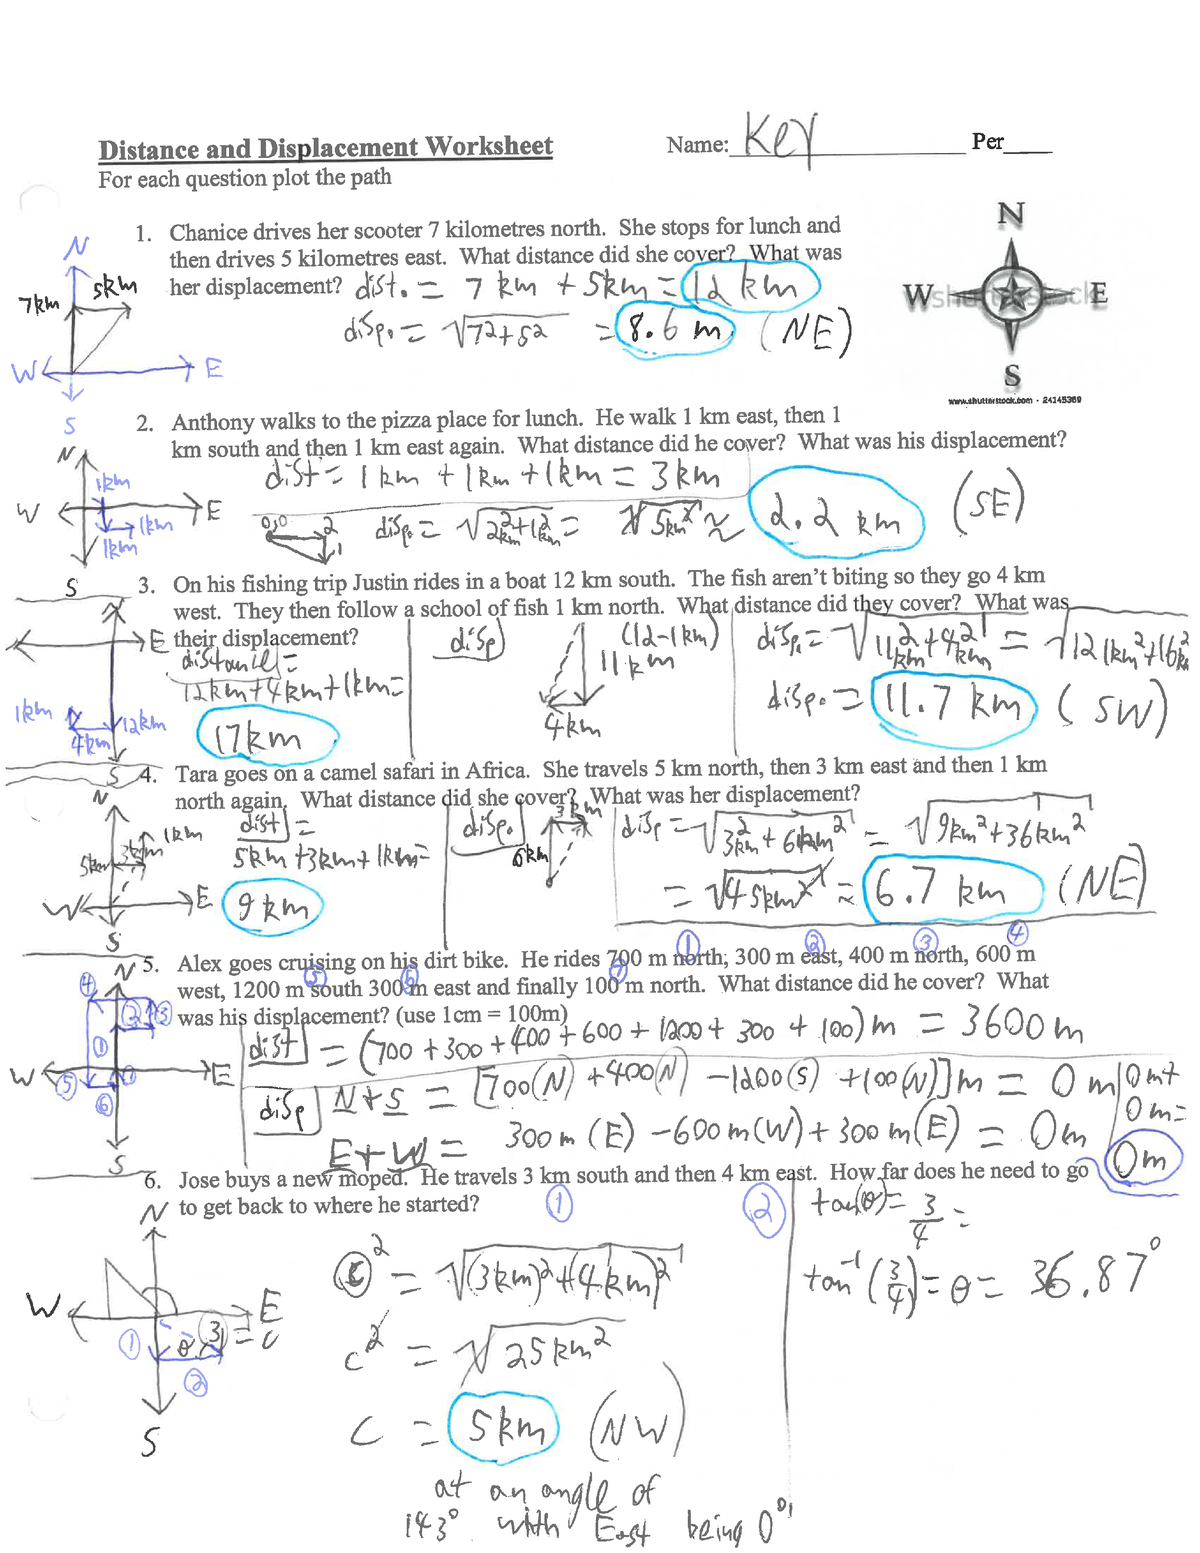 Distance and Displacement Worksheet Name: Key Per
For each question plot the path
N
W E
S
www.shutterstock.com · 24145369
1. Chanice drives her scooter 7 kilometres north. She stops for lunch and
then drives 5 kilometres east. What distance did she cover? What was
her displacement? dist. = 7 km + 5km = 12 km
disp. = √7²+5² = 8.6 m (NE)
N
7km 5km
W E
S
2. Anthony walks to the pizza place for lunch. He walk 1 km east, then 1
km south and then 1 km east again. What distance did he cover? What was his displacement?
dist = 1 km + 1km + 1km = 3km
disp. = √2²km+1²km = √5km² ≈ 2.2 km (SE)
0,0 2
1
N
1km
W E
1km
1km
S
3. On his fishing trip Justin rides in a boat 12 km south. The fish aren't biting so they go 4 km
west. They then follow a school of fish 1 km north. What distance did they cover? What was
their displacement?
E
distance =
12km+4km+1km=
17km
disp
(12-1km)
11km
4km
disp. = √11²km+4²km = √121km²+16km
disp. = 11.7 km (SW)
1km
12km
4km
S
4. Tara goes on a camel safari in Africa. She travels 5 km north, then 3 km east and then 1 km
north again. What distance did she cover? What was her displacement?
dist =
5km+3km+1km=
9km
disp.
3km
6km
disp = √3²km+6²km = √9km²+36km²
= √45km² ≈ 6.7 km (NE)
N
1km
5km 3km
W E
S
① ② ③ ④
5. Alex goes cruising on his dirt bike. He rides 700 m north, 300 m east, 400 m north, 600 m
⑤ ⑥ ⑦
west, 1200 m south 300 m east and finally 100 m north. What distance did he cover? What
was his displacement? (use 1cm = 100m)
dist = (700+300+400+600+1200+300+100)m = 3600m
disp N+S = [700(N)+400(N)-1200(S)+100(N)]m = 0m
E+W = 300m(E)-600m(W)+300m(E) = 0m
0m+
0m=
0m
N
④
② ③
①
W E
⑤ ⑦
⑥
S
6. Jose buys a new moped. He travels 3 km south and then 4 km east. How far does he need to go
to get back to where he started? ① ②
c² = √(3km)²+(4km)²
c² = √25km²
c = 5km (NW)
at an angle of
143° with East being 0°
tan(θ) = 3/4 =
tan⁻¹(3/4) = θ = 36.87°
N
W E
① θ ③ = c
②
S